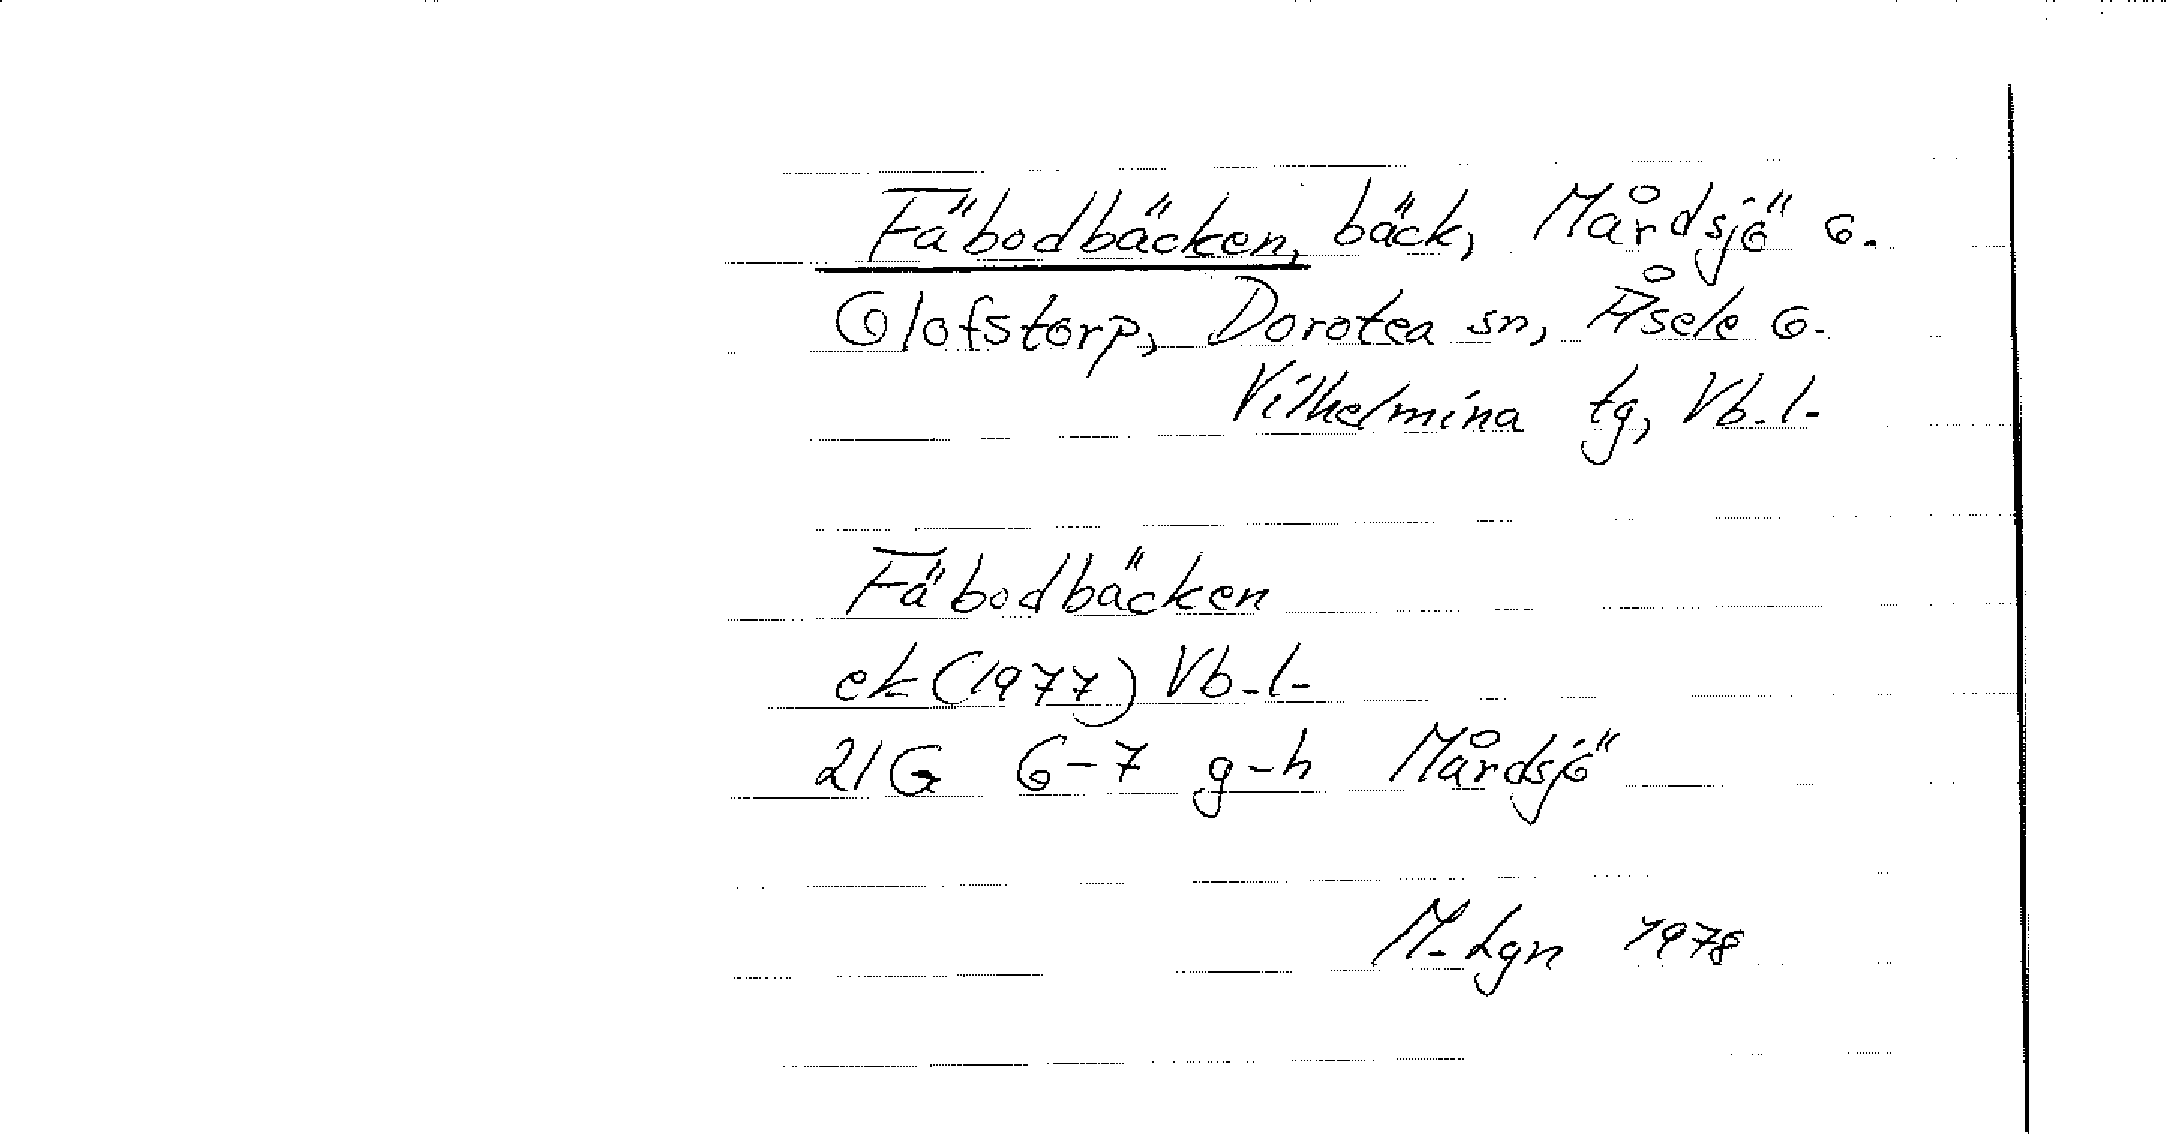 Fäbodbäcken, bäck, Mårdsjö o.
Olofstorp, Dorotea sn, Åsele o.
Vilhelmina tg, Vb. l.
Fäbodbäcken
ek (1977) Vb. l.
21G 6-7 g-h Mårdsjö
M. Lgn 1978